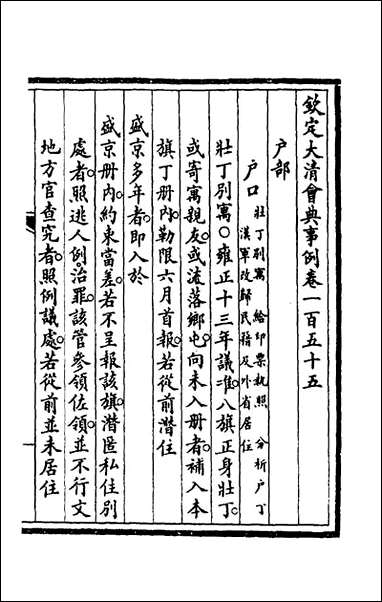 欽定大清會典事例卷一百五十五
户部
户口 壯丁别寓 給印票執照 分析户丁
漢軍改歸民籍及外省居住
壯丁别寓○雍正十三年議准八旗正身壯丁。
或寄寓親友。或流落鄉屯。向未入册者。補入本
旗丁册内。勒限六月首報。若從前潛住
盛京多年者。即入於
盛京册内。約束當差。若不呈報該旗。潛匿私住别
處者。照逃人例治罪。該管參領佐領。並不行文
地方官查究者。照例議處。若從前並未居住